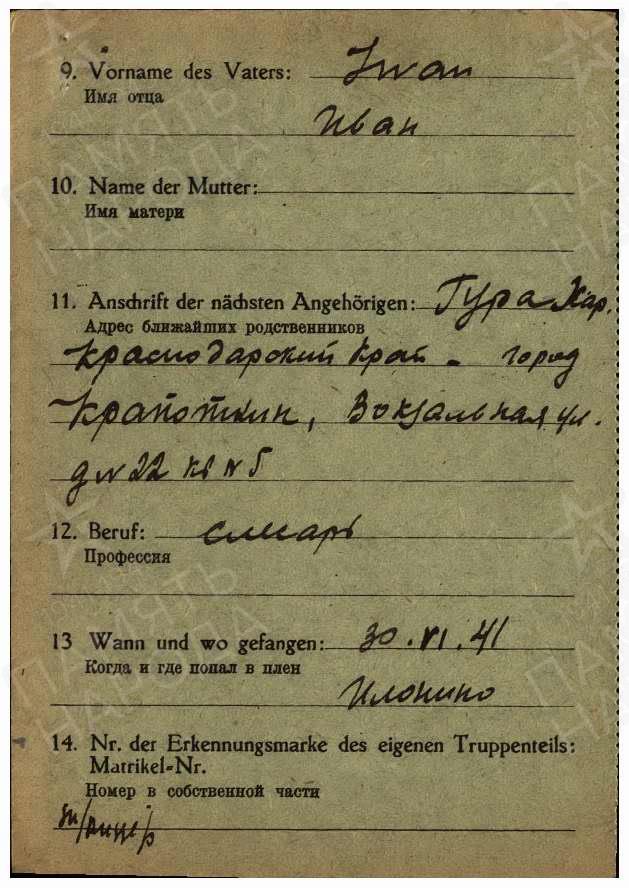 9. Vorname des Vaters: Iwan
Имя отца
Иван
10. Name der Mutter:
Имя матери
11. Anschrift der nächsten Angehörigen: Гура Хар.
Адрес ближайших родственников
Краснодарский край - город
Крапоткин, Вокзальная ул.
д N 22 кв N 5
12. Beruf: слесарь
Профессия
13 Wann und wo gefangen: 30.VI.41
Когда и где попал в плен
14. Nr. der Erkennungsmarke des eigenen Truppenteils:
Matrikel-Nr.
Номер в собственной части
ПАМЯТЬ
НАРОДА
ПАМЯТЬ
НАРОДА